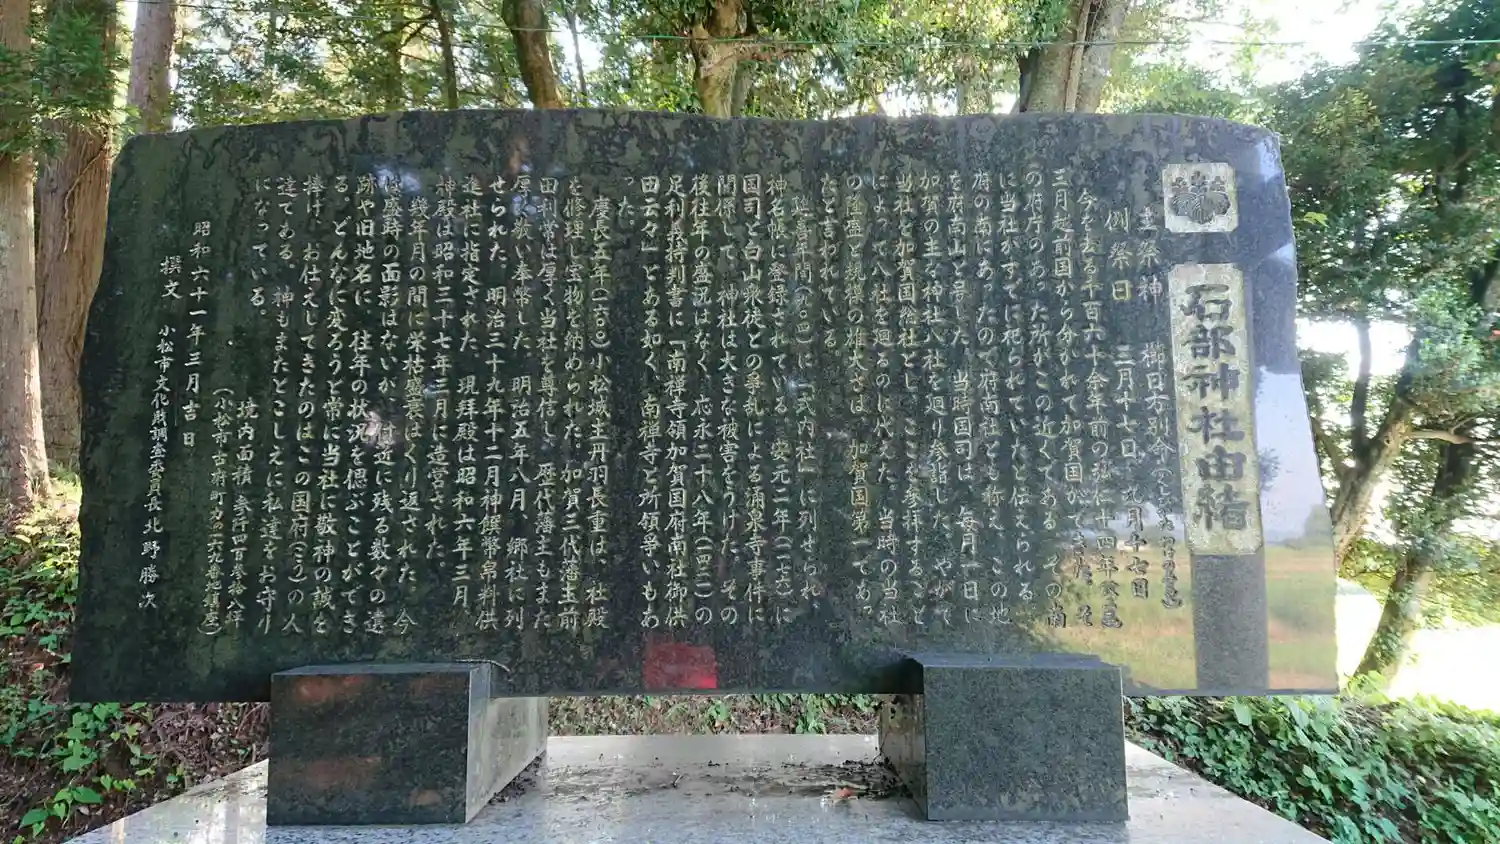 石部神社由緒
主祭神 櫛日方別命
例祭日 三月十七日、九月十七日
今を去る千百六十余年前の弘仁十四年
三月越前国から分かれて加賀国ができた。そ
の府庁のあった所がこの近くである。その南
に当社がすでに祀られていたと伝えられる。
府の南にあったので府南社とも称え、この地
を府南山と号した。当時国司は、毎月一日に
加賀の主な神社八社を廻り参詣した。やがて
当社を加賀国総社とし、ここを参拝すること
によって八社を廻るのに代えた。当時の当社
の隆盛と規模の雄大さは、加賀国第一であっ
たと言われている。
延喜年間(九〇四)に「式内社」に列せられ、
神名帳に登録されている。安元二年(一一七六)に
国司と白山衆徒との争乱による涌泉寺事件に
関係して、神社は大きな被害をうけた。その
後往年の盛況はなく、応永二十八年(一四二一)の
足利義持判書に「南禅寺領加賀国府南社御供
田云々」とある如く、南禅寺と所領争いもあ
った。
慶長五年(一六〇〇)小松城主丹羽長重は、社殿
を修理し宝物を納められた。加賀三代藩主前
田利常は厚く当社を尊信し、歴代藩主もまた
厚く敬い奉幣した。明治五年八月、郷社に列
せられた。明治三十九年十二月神饌幣帛料供
進社に指定された。現拝殿は昭和六年三月、
神殿は昭和三十七年三月に造営された。
幾年月の間に栄枯盛衰はくり返された。今
は盛時の面影はないが、付近に残る数々の遺
跡や旧地名に、往年の状況を偲ぶことができ
る。どんなに変ろうと常に当社に敬神の誠を
捧げ、お仕えしてきたのはこの国府(こう)の人
達である。神もまたとこしえに私達をお守り
になっている。
境内面積 参阡四百参拾八坪
(小松市古府町
昭和六十一年三月吉日
撰文 小松市文化財調査委員長 北野勝次